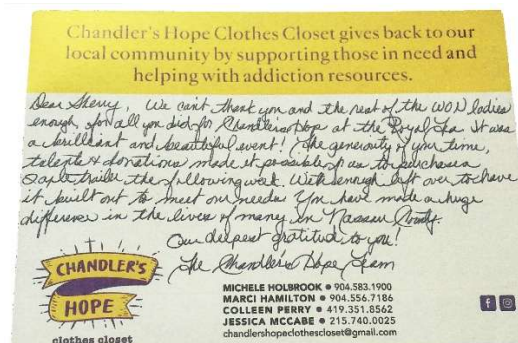 Chandler's Hope Clothes Closet gives back to our
local community by supporting those in need and
helping with addiction resources.
Dear Sherry, We can't thank you and the rest of the WON ladies
enough for all you did for Chandler's Hope at the Royal Tea. It was
a brilliant and beautiful event! The generosity of your time,
talents & donations made it possible for us to purchase a
2 axle trailer the following week. With enough left over to have
it built out to meet our needs. You have made a huge
difference in the lives of many in Nassau County.
Our deepest gratitude to you!
The Chandler's Hope Team
CHANDLER'S
HOPE
clothes closet
MICHELE HOLBROOK • 904.583.1900
MARCI HAMILTON • 904.556.7186
COLLEEN PERRY • 419.351.8562
JESSICA MCCABE • 215.740.0025
chandlershopeclothescloset@gmail.com